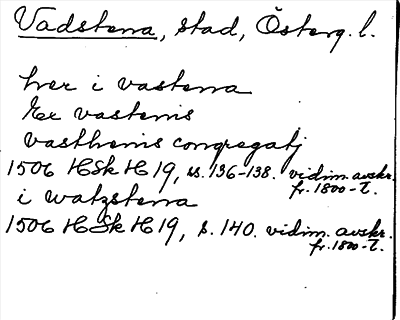 Vadstena, stad, Österg. l.
her i vastena
Ex vastenis
vasthenis congregatj
1506 HSk H 19, ss. 136-138. vidim. avskr. fr. 1800-t.
i watzstena
1506 HSk H 19, s. 140. vidim. avskr. fr. 1800-t.